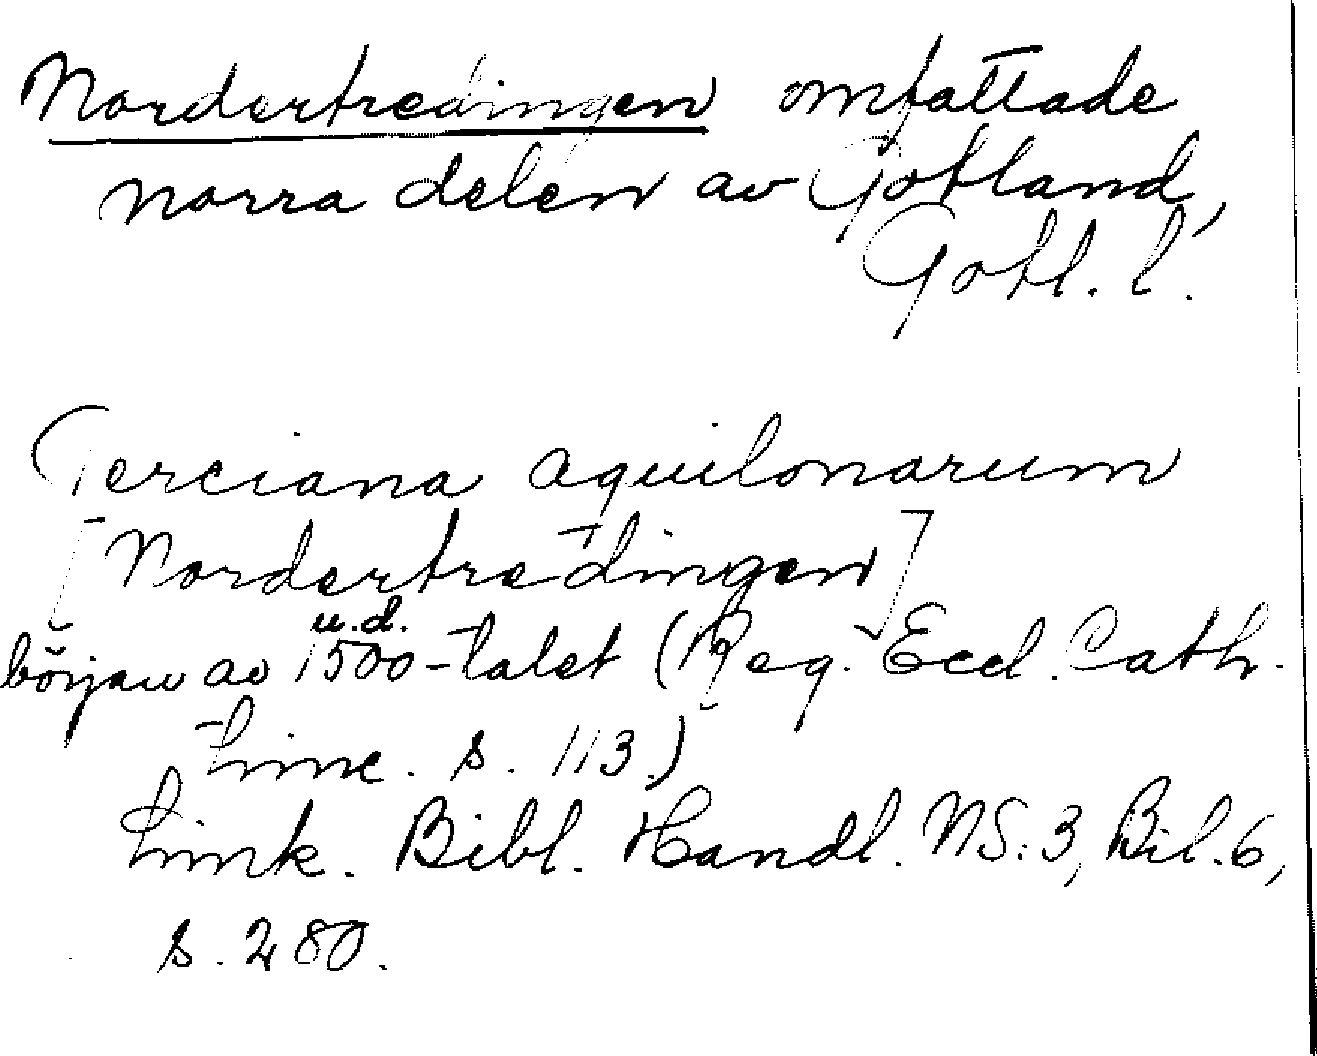 Nordertredingen omfattade
norra delen av Gotland,
Gotl. l.
Terciana aquilonarum
[Nordertredingen]
u.d.
början av 1500-talet (Reg. Eccl. Cath.
Linc. s. 113.)
Link. Bibl. Handl. NS:3, Bil. 6,
s. 280.